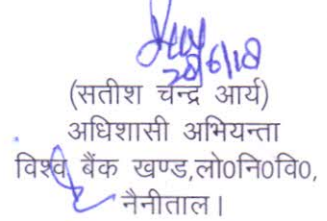 28/6/18
(सतीश चन्द्र आर्य)
अधिशासी अभियन्ता
विश्व बैंक खण्ड,लो०नि०वि०,
नैनीताल।